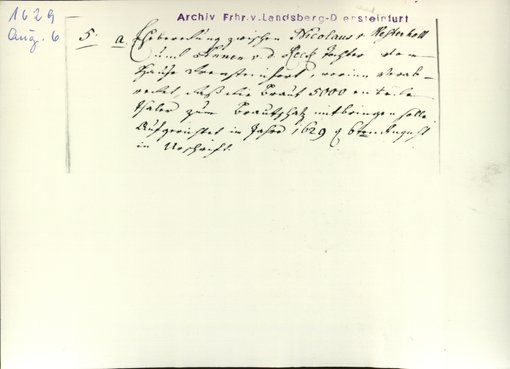 1629
Aug. 6
Archiv Frhr.v.Landsberg-D ersteinfurt
5. a Eheberedung zwischen Nicolaus v Westerholt
und Annen v. d. Reck Tochter vom
Hause Drensteinfurt, worinn verab-
redet, daß die Braut 5000 en
Thaler zum Brautschatz mitbringen solle
Aufgerichtet im Jahre 1629 6ten August
in Urschrift.